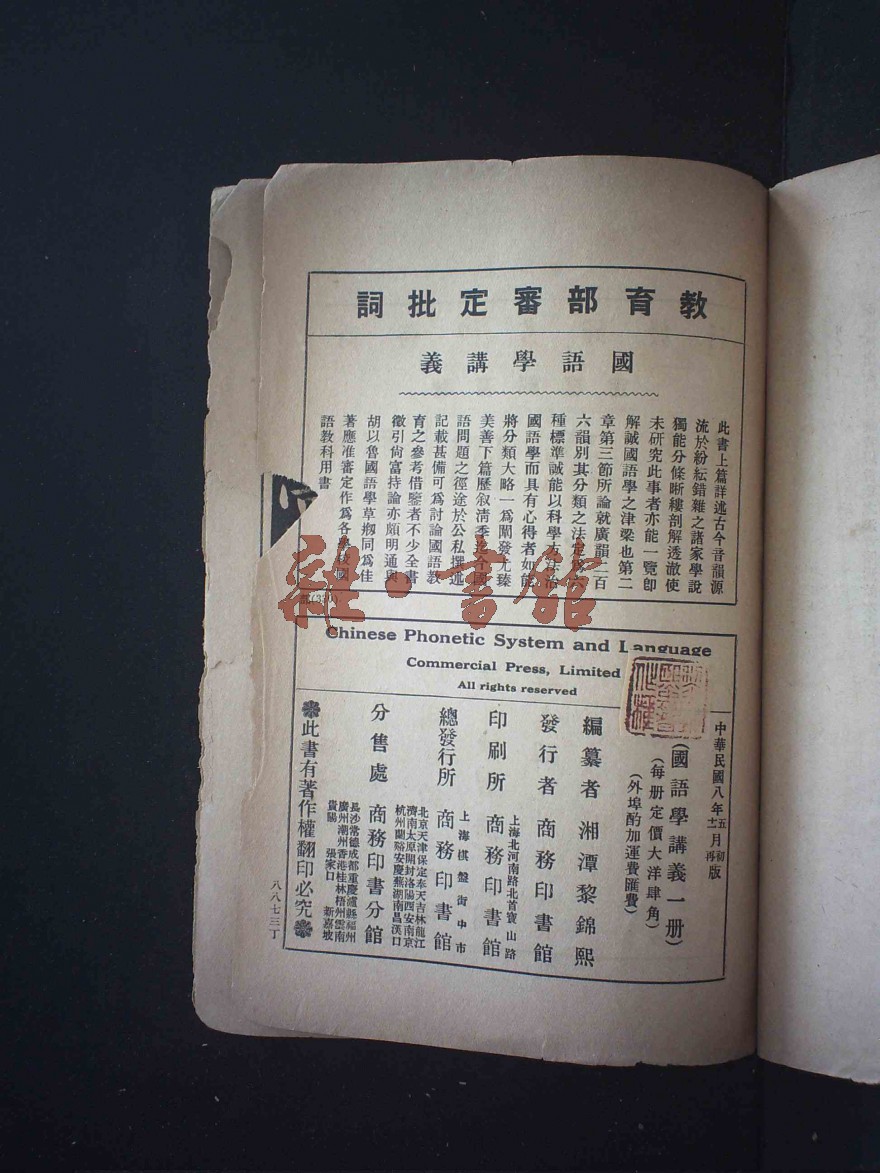 教育部審定批詞
國語學講義
此書上篇詳述古今音韻源
流於紛紜錯雜之諸家學說
獨能分條晰縷剖解透澈使
未研究此事者亦能一覽卽
解誠國語學之津梁也第二
章第三節所論就廣韻二百
六韻別其分類之法定爲六
種標準誠能以科學方法治
國語學而具有心得者如能
將分類大略一爲闡發尤臻
美善下篇歷叙淸季迄今國
語問題之徑途於公私撰述
記載甚備可爲討論國語敎
育之參考借鑒者不少全書
徵引尙富持論亦頗明通與
胡以魯國語學草刱同爲佳
著應准審定作爲各學校國
語敎科用書
Chinese Phonetic System and Language
Commercial Press, Limited
All rights reserved
中華民國八年五月初版
十二月再版
(國語學講義一册)
(每册定價大洋肆角)
(外埠酌加運費匯費)
編纂者 湘潭黎錦熙
發行者 商務印書館
上海北河南路北首寶山路
印刷所 商務印書館
上海棋盤街中市
總發行所 商務印書館
北京天津保定奉天吉林龍江
濟南太原開封洛陽西安南京
杭州蘭谿安慶蕪湖南昌漢口
分售處 商務印書分館
長沙常德成都重慶瀘縣福州
廣州潮州香港桂林梧州雲南
貴陽 張家口 新嘉坡
此書有著作權翻印必究
八八七三丁
雜·書館